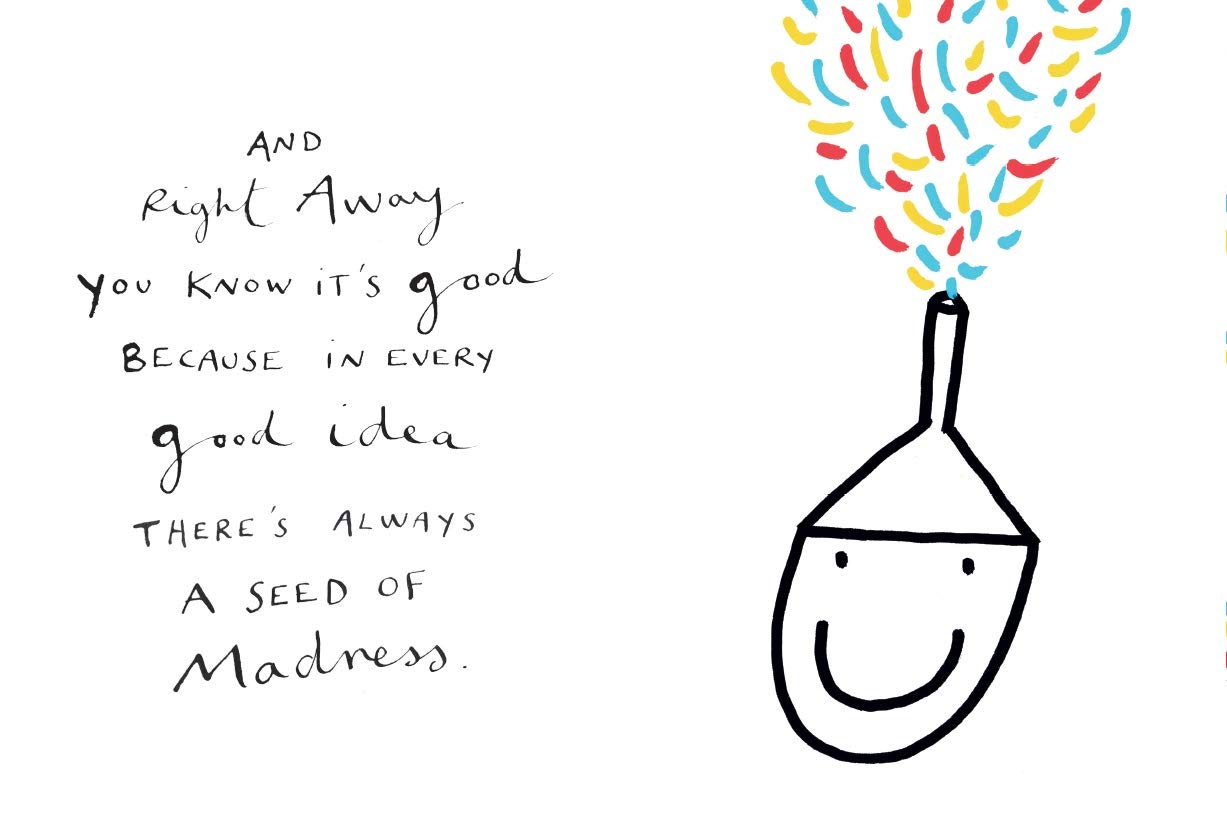 AND
Right Away
You KNOW iT'S good
BECAUSE iN EVERY
good idea
THERE'S ALWAYS
A SEED OF
Madness.